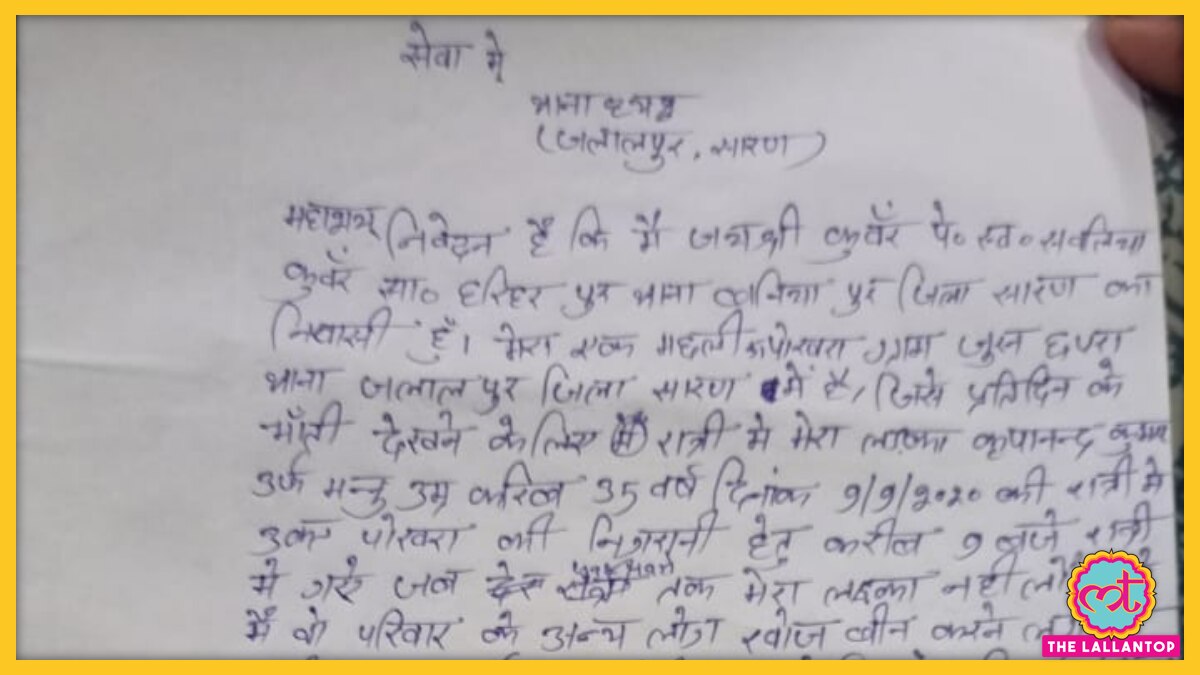 सेवा में
थाना
(जलालपुर, सारण)
महाशय निवेदन है कि मै जयश्री कुवँर पे० स्व०
कुवँर सा० हरिहर पुर थाना बनिया पुर जिला सारण का
निवासी हुँ। मेरा एक मछली का पोखरा ग्राम छपरा
थाना जलाल पुर जिला सारण में है, जिसे प्रतिदिन के
भाँती देखने के लिए रात्री मे मेरा लड़का कृपानन्द कुमार
उर्फ मन्टु उम्र करिब 35 वर्ष दिनांक 9/9/2020 की रात्री मे
उक्त पोखरा की निगरानी हेतु करीब 9 बजे रात्री
मे गए जब देर तक मेरा लड़का नही
मैं वो परिवार के अन्य लोग खोज बीन करने
THE LALLANTOP